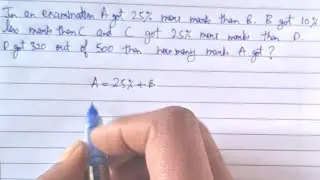 In an examination A got 25% more mark than B. B got 10%
less mark then C and C got 25% more mark then D.
D got 320 out of 500 then how many mark A got ?
A = 25% + B